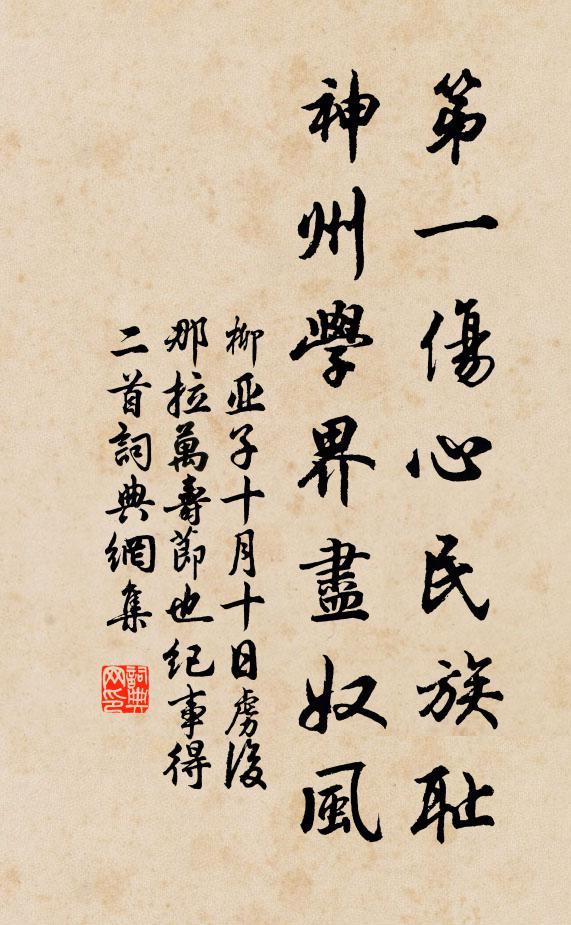 第一傷心民族耻
神州學界盡奴風
柳亚子十月十日虜後
那拉萬壽節也纪事得
二首詞典網集
詞典网印